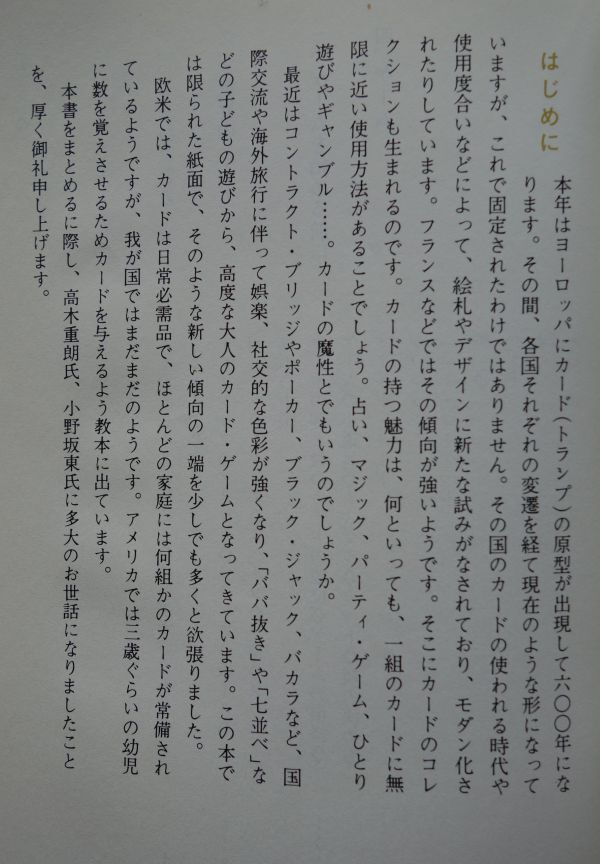 はじめに
本年はヨーロッパにカード(トランプ)の原型が出現して六〇〇年にな
ります。その間、各国それぞれの変遷を経て現在のような形になって
いますが、これで固定されたわけではありません。その国のカードの使われる時代や
使用度合いなどによって、絵札やデザインに新たな試みがなされており、モダン化さ
れたりしています。フランスなどではその傾向が強いようです。そこにカードのコレ
クションも生まれるのです。カードの持つ魅力は、何といっても、一組のカードに無
限に近い使用方法があることでしょう。占い、マジック、パーティ・ゲーム、ひとり
遊びやギャンブル……。カードの魔性とでもいうのでしょうか。
最近はコントラクト・ブリッジやポーカー、ブラック・ジャック、バカラなど、国
際交流や海外旅行に伴って娯楽、社交的な色彩が強くなり、「ババ抜き」や「七並べ」な
どの子どもの遊びから、高度な大人のカード・ゲームとなってきています。この本で
は限られた紙面で、そのような新しい傾向の一端を少しでも多くと欲張りました。
欧米では、カードは日常必需品で、ほとんどの家庭には何組かのカードが常備され
ているようですが、我が国ではまだまだのようです。アメリカでは三歳ぐらいの幼児
に数を覚えさせるためカードを与えるよう教本に出ています。
本書をまとめるに際し、高木重朗氏、小野坂東氏に多大のお世話になりましたこと
を、厚く御礼申し上げます。